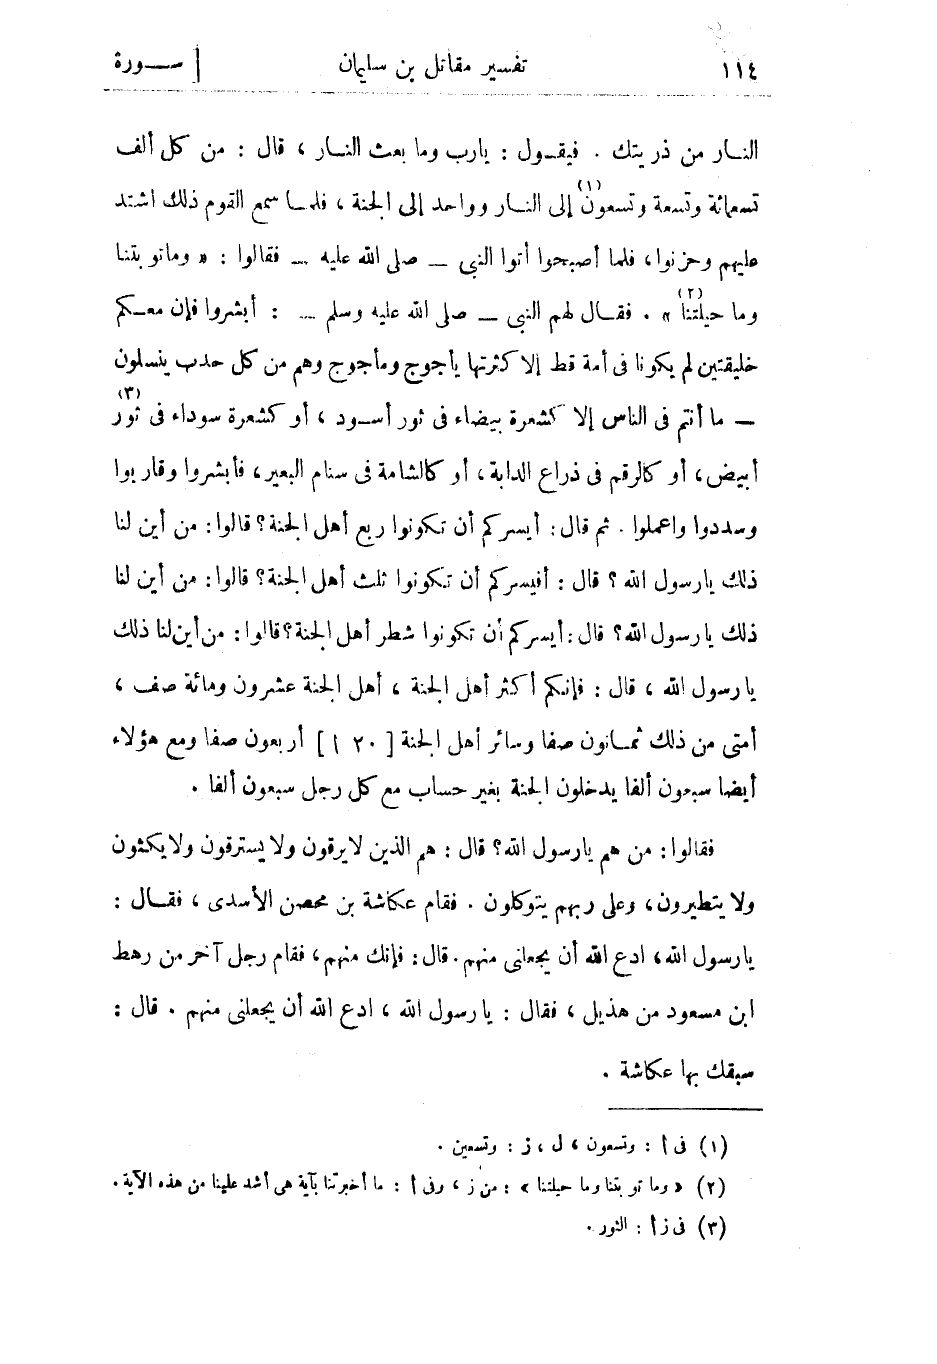 ١١٤ تفسير مقاتل بن سليمان [ سـورة
النـار من ذريتك . فيقـول : يارب وما بعث النـار ، قال : من كل ألف
تسعمائة وتسعة وتسعون(١) إلى النـار وواحد إلى الجنة ، فلمـا سمع القوم ذلك اشتد
عليهم وحزنوا، فلما أصبحوا أتوا النبى — صلى الله عليه — فقالوا : « وماتوبتنا
وما حيلتنا(٢) » . فقـال لهم النبى — صلى الله عليه وسلم — : أبشروا فإن معـكم
خليقتين لم يكونا فى أمة قط إلا كثرتها يأجوج ومأجوج وهم من كل حدب ينسلون
— ما أنتم فى الناس إلا كشعرة بيضاء فى ثور أسـود ، أو كشعرة سوداء فى ثور(٣)
أبيض، أو كالرقم فى ذراع الدابة، أو كالشامة فى سنام البعير، فأبشروا وقاربوا
وسددوا واعملوا . ثم قال: أيسركم أن تكونوا ربع أهل الجنة؟ قالوا: من أين لنا
ذلك يارسول الله ؟ قال : أفيسركم أن تكونوا ثلث أهل الجنة؟ قالوا: من أين لنا
ذلك يارسول الله؟ قال: أيسركم أن تكونوا شطر أهل الجنة؟ قالوا: من أين لنا ذلك
يارسول الله ، قال : فإنكم أكثر أهل الجنة ، أهل الجنة عشرون ومائة صف ،
أمتى من ذلك ثمـانون صفا وسائر أهل الجنة [ ٢٠ أ] أربعون صفا ومع هؤلاء
أيضا سبعون ألفا يدخلون الجنة بغير حساب مع كل رجل سبعون ألفا .
فقالوا: من هم يارسول الله؟ قال : هم الذين لايرقون ولا يسترقون ولا يكتوون
ولا يتطيرون، وعلى ربهم يتوكلون . فقام عكاشة بن محصن الأسدى ، فقـال :
يارسول الله، ادع الله أن يجعلنى منهم. قال: فإنك منهم، فقام رجل آخر من رهط
ابن مسعود من هذيل ، فقال : يارسول الله ، ادع الله أن يجعلنى منهم . قال :
سبقك بها عكاشة .
(١) فى أ : وتسعون ، ل ، ز : وتسعين .
(٢) « وما توبتنا وما حيلتنا » : من ز ، وفى أ : ما أخبرتنا بآية هى أشد علينا من هذه الآية .
(٣) فى ز أ : الثور .